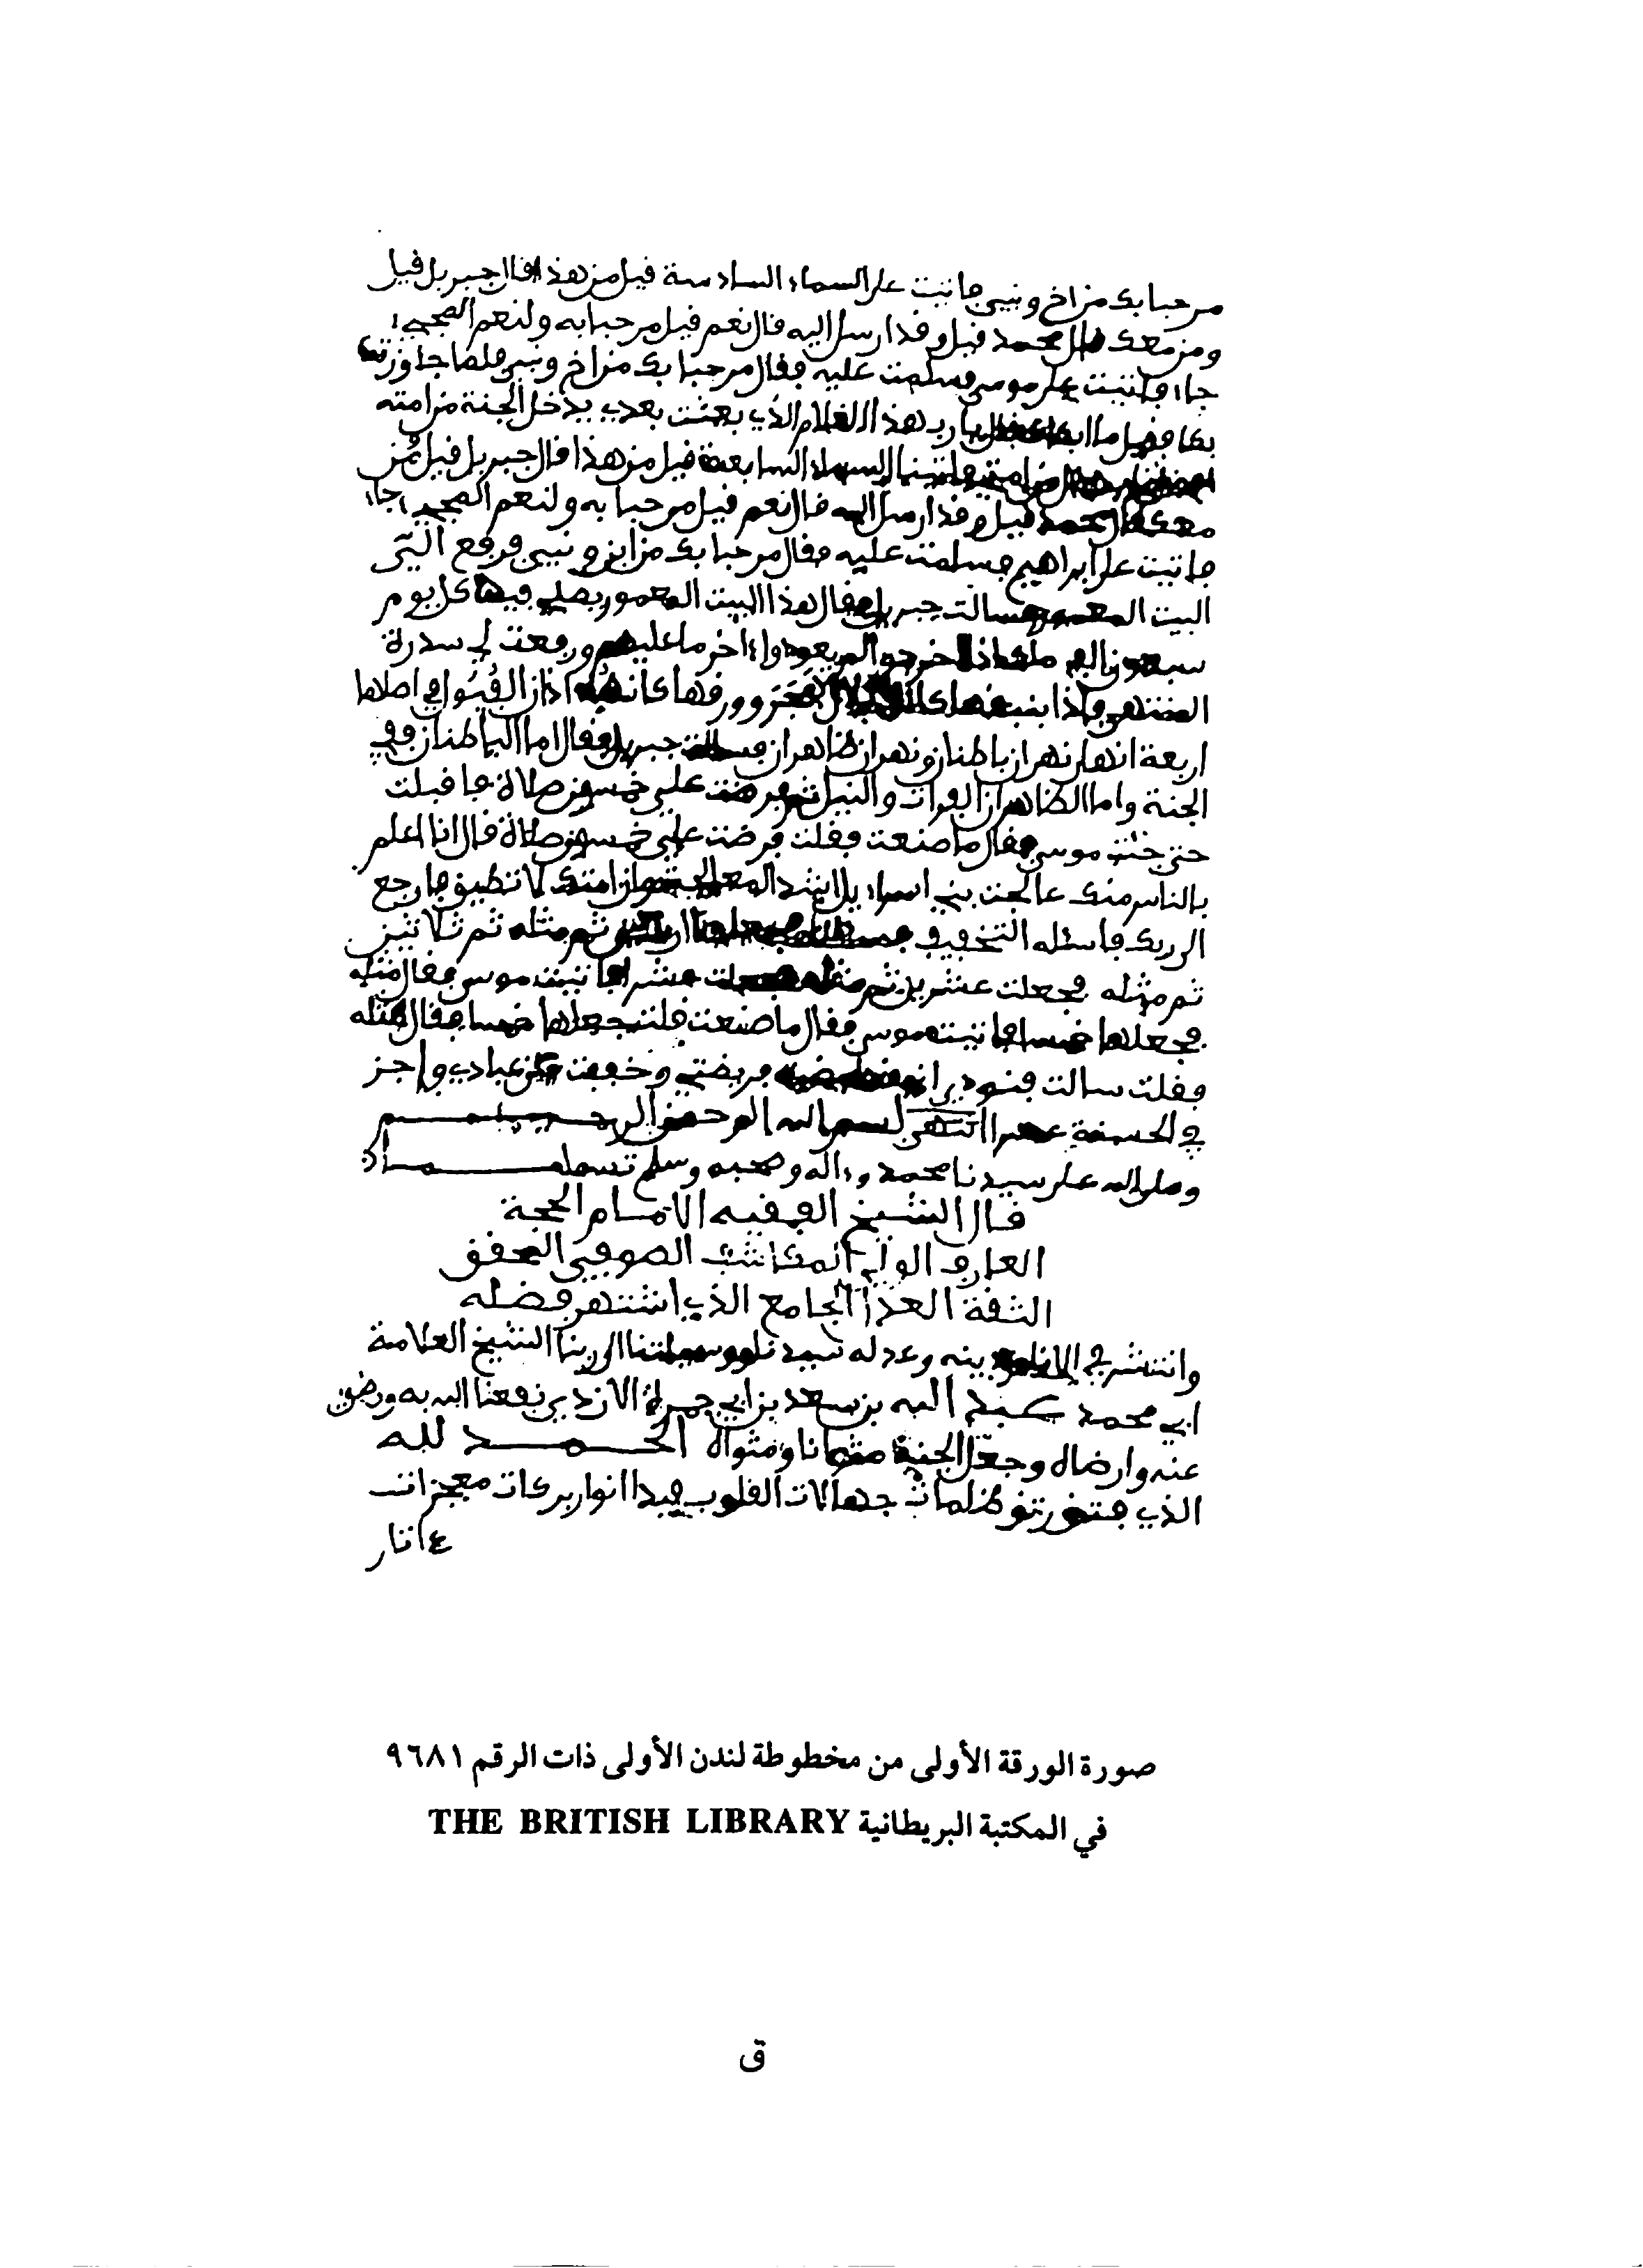 مرحبا بك من اخ ونبي فاتيت على السماء السادسة قيل من هذا قال جبريل قيل
ومن معك قال محمد قيل وقد ارسل اليه قال نعم قيل مرحبا به ولنعم المجيء
جاء فاتيت على موسى فسلمت عليه فقال مرحبا بك من اخ ونبي فلما جاوزت
بكا فقيل ما ابكاك فقال يا رب هذا الغلام الذي بعثت بعدي يدخل الجنة من امته
من امتي فاتينا السماء السابعة قيل من هذا قال جبريل قيل من
معك قال محمد قيل وقد ارسل اليه قال نعم قيل مرحبا به ولنعم المجيء جاء
فاتيت على ابراهيم فسلمت عليه فقال مرحبا بك من ابن ونبي فرفع الي
البيت المعمور فسالت جبريل فقال هذا البيت المعمور يصلي فيه كل يوم
سبعون الف ملك اذا خرجوا لم يعودوا اخر ما عليهم ورفعت لي سدرة
المنتهى فاذا نبقها هجر وورقها كانه اذان الفيول في اصلها
اربعة انهار نهران باطنان ونهران ظاهران فسالت جبريل فقال اما الباطنان ففي
الجنة واما الظاهران الفرات والنيل ثم فرضت علي خمسون صلاة فاقبلت
حتى جئت موسى فقال ما صنعت فقلت فرضت علي خمسون صلاة قال انا اعلم
بالناس منك عالجت بني اسراءيل اشد المعالجة وان امتك لا تطيق فارجع
الى ربك فاسئله التخفيف ثم مثله ثم ثلاثين
ثم مثله فجعلت عشرين ثم مثله فجعلت عشرا فاتيت موسى فقال مثله
فجعلها خمسا فاتيت موسى فقال ما صنعت قلت جعلها خمسا فقال مثله
فقلت سالت فنودي اني فريضتي وخففت عن عبادي واجز
في الحسنة عشرا انتهى بسم الله الرحمن الرحيم
وصلى الله على سيدنا محمد وءاله وصحبه وسلم تسليما
قال الشيخ الفقيه الامام الحجة
العارف الولي المكاشف الصوفي المحقق
الثقة العدل الجامع الذي اشتهر فضله
وانتشر في الانام دينه وعدله سيدنا ووسيلتنا الى ربنا الشيخ العلامة
ابي محمد عبد الله بن سعد بن ابي جمرة الازدي نفعنا الله به ورضي
عنه وارضاه وجعل الجنة مثوانا ومثواه الحمد لله
الذي فتق رتق ظلمات جهالات القلوب فبدا انوار بركات معجزات
اثار
صورة الورقة الأولى من مخطوطة لندن الأولى ذات الرقم ٩٦٨١
في المكتبة البريطانية THE BRITISH LIBRARY
ق